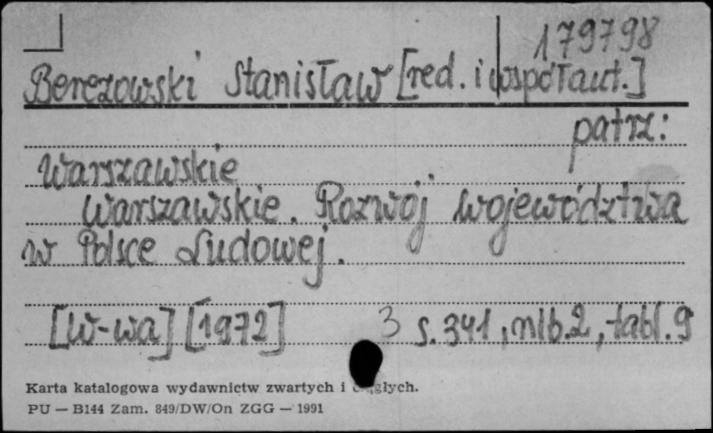 179798
Berezowski Stanisław [red. i współaut.]
patrz:
Warszawskie
Warszawskie. Rozwój województwa
w Polsce Ludowej.
[W-wa] [1972] 3 s. 341, nlb. 2, tabl. 9
Karta katalogowa wydawnictw zwartych i ciągłych.
PU — B144 Zam. 849/DW/On ZGG — 1991